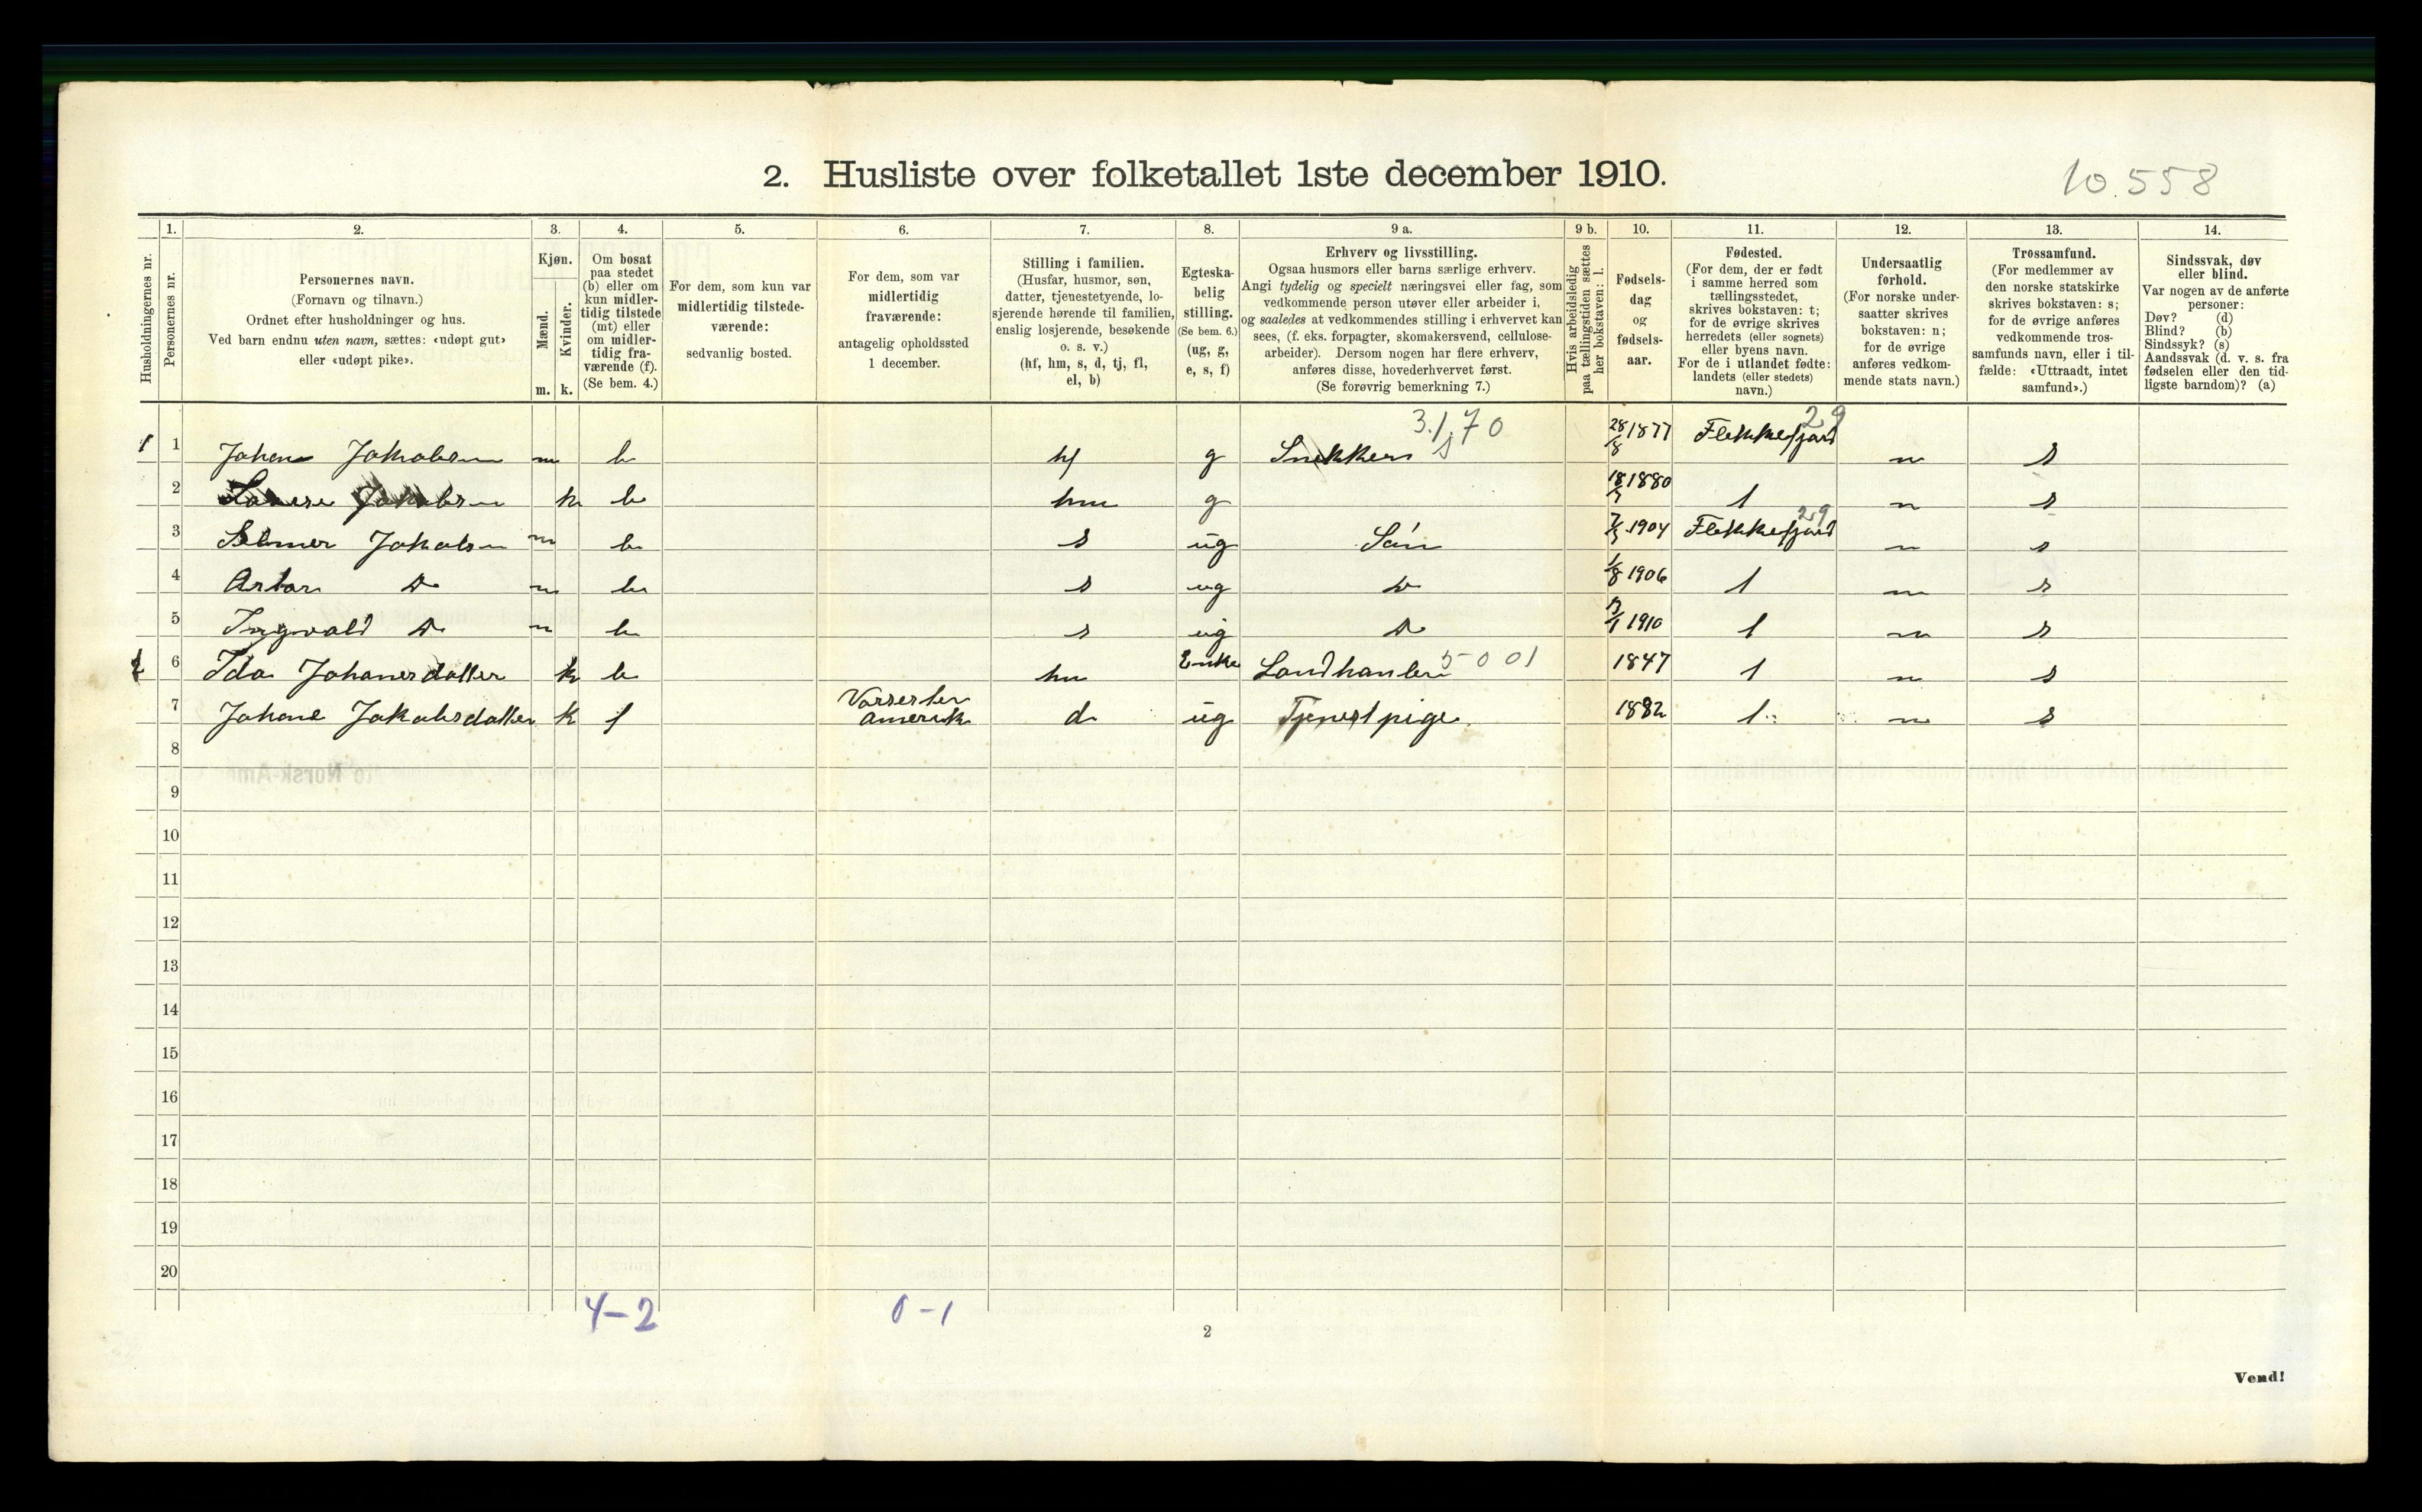 2. Husliste over folketallet 1ste december 1910.
10.558
1. 2. 3. 4. 5. 6. 7. 8. 9 a. 9 b. 10. 11. 12. 13. 14.
Husholdningernes nr.
Personernes nr.
Personernes navn.
(Fornavn og tilnavn.)
Ordnet efter husholdninger og hus.
Ved barn endnu uten navn, sættes: «udøpt gut»
eller «udøpt pike».
Kjøn.
Mænd.
m.
Kvinder.
k.
Om bosat
paa stedet
(b) eller om
kun midler-
tidig tilstede
(mt) eller
om midler-
tidig fra-
værende (f).
(Se bem. 4.)
For dem, som kun var
midlertidig tilstede-
værende:
sedvanlig bosted.
For dem, som var
midlertidig
fraværende:
antagelig opholdssted
1 december.
Stilling i familien.
(Husfar, husmor, søn,
datter, tjenestetyende, lo-
sjerende hørende til familien,
enslig losjerende, besøkende
o. s. v.)
(hf, hm, s, d, tj, fl,
el, b)
Egteska-
belig
stilling.
(Se bem. 6.)
(ug, g,
e, s, f)
Erhverv og livsstilling.
Ogsaa husmors eller barns særlige erhverv.
Angi tydelig og specielt næringsvei eller fag, som
vedkommende person utøver eller arbeider i,
og saaledes at vedkommendes stilling i erhvervet kan
sees, (f. eks. forpagter, skomakersvend, cellulose-
arbeider). Dersom nogen har flere erhverv,
anføres disse, hovederhvervet først.
(Se forøvrig bemerkning 7.)
Hvis arbeidsledig
paa tællingstiden sættes
her bokstaven: l.
Fødsels-
dag
og
fødsels-
aar.
Fødested.
(For dem, der er født
i samme herred som
tællingsstedet,
skrives bokstaven: t;
for de øvrige skrives
herredets (eller sognets)
eller byens navn.
For de i utlandet fødte:
landets (eller stedets)
navn.)
Undersaatlig
forhold.
(For norske under-
saatter skrives
bokstaven: n;
for de øvrige
anføres vedkom-
mende stats navn.)
Trossamfund.
(For medlemmer av
den norske statskirke
skrives bokstaven: s;
for de øvrige anføres
vedkommende tros-
samfunds navn, eller i til-
fælde: «Uttraadt, intet
samfund».)
Sindssvak, døv
eller blind.
Var nogen av de anførte
personer:
Døv? (d)
Blind? (b)
Sindssyk? (s)
Aandssvak (d. v. s. fra
fødselen eller den tid-
ligste barndom)? (a)
3.170 29
1 1 Johan Jakobsen m b hf g Snekker 28/8 1877 Flekkefjord n s
2 Jakobsen k b hm g 1880 t n s
29
3 Jakobsen m b s ug Søn 1904 Flekkefjord n s
4 Artor Do m b s ug Do 1/8 1906 t n s
5 Ingvald Do m b s ug Do 1910 t n s
2 6 Ida Johanesdatter k b hm Enke Landhandleri 5001 1847 t n s
7 Johane Jakobsdatter k f Vorsester Amerik d ug Tjenestpige 1882 t n s
8
9
10
11
12
13
14
15
16
17
18
19
20
4-2 0-1
2
Vend!